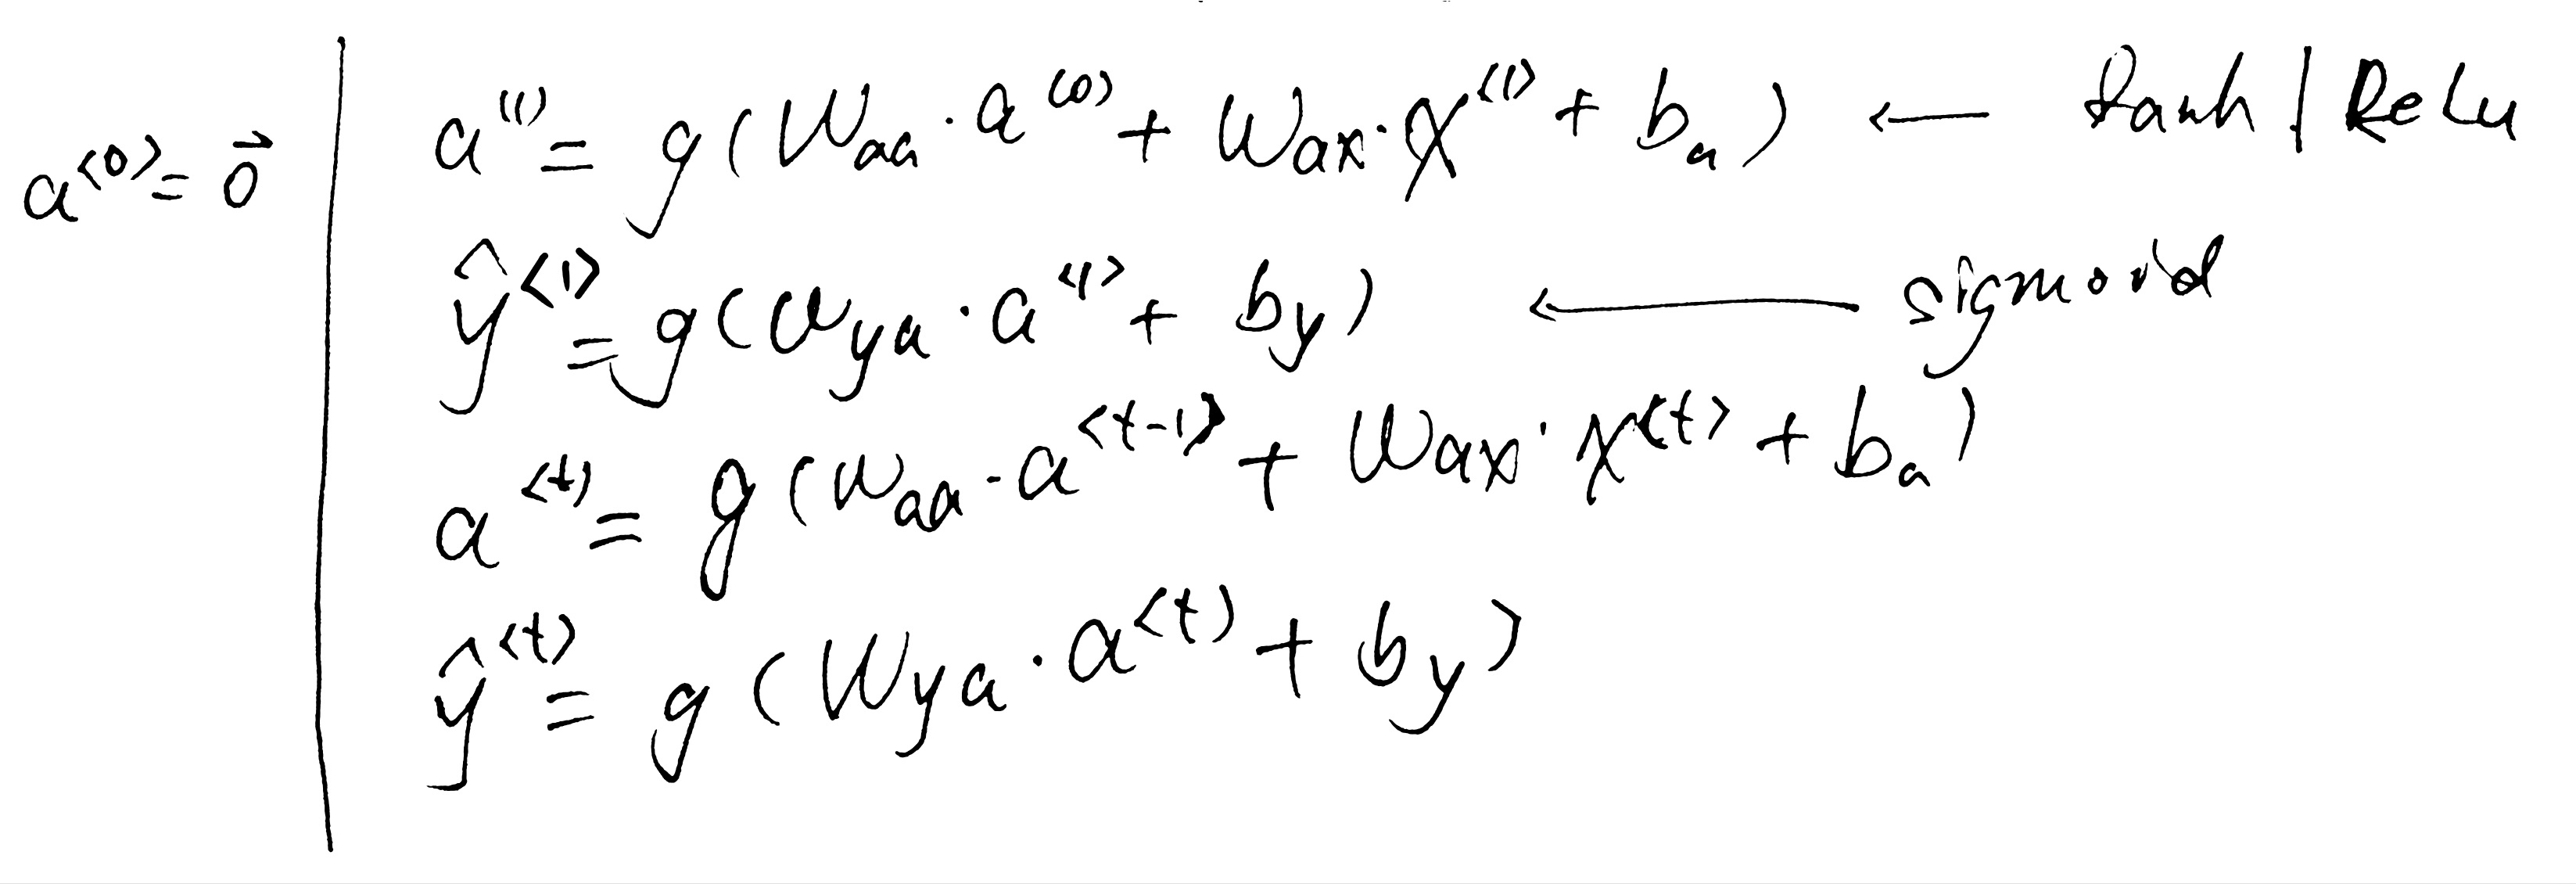 a^{<0>} = \vec{0}
a^{(1)} = g(W_{aa} · a^{(0)} + W_{ax} · x^{<1>} + b_a) ← tanh | ReLu
ŷ^{<1>} = g(W_{ya} · a^{<1>} + b_y) ← sigmoid
a^{<t>} = g(W_{aa} · a^{<t-1>} + W_{ax} · x^{<t>} + b_a)
ŷ^{<t>} = g(W_{ya} · a^{<t>} + b_y)